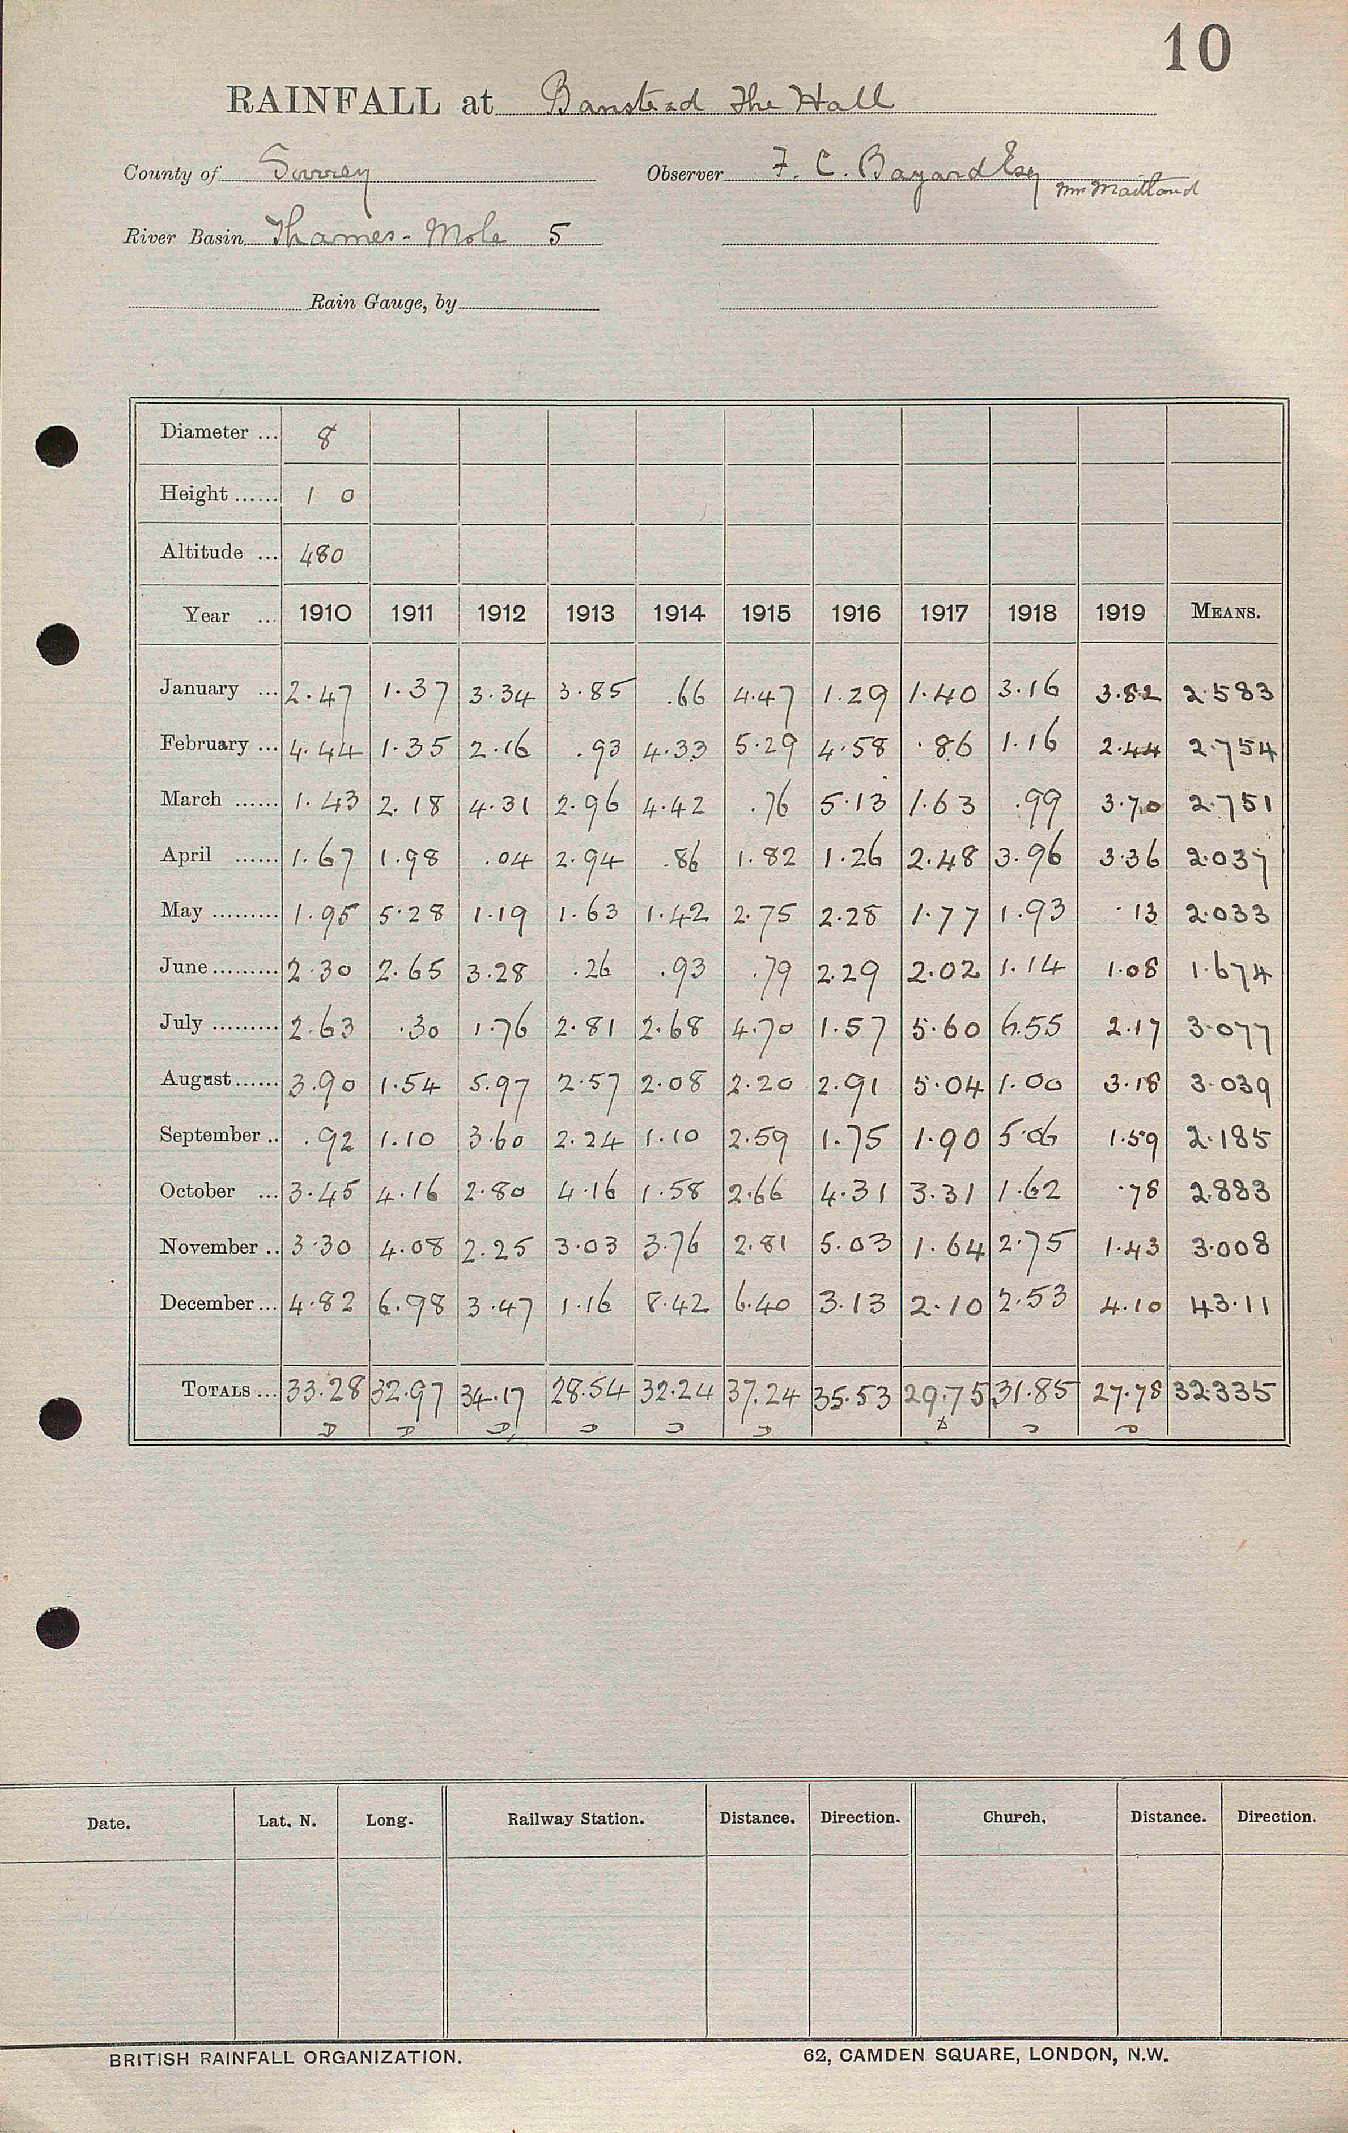 10
RAINFALL at Banstead The Hall
County of Surrey Observer F. C. Bayard Esq
Mrs Maitland
River Basin Thames - Mole 5
Rain Gauge, by
Diameter ... 8
Height ...... 1 0
Altitude ... 480
Year ... 1910 1911 1912 1913 1914 1915 1916 1917 1918 1919 MEANS.
January ... 2.47 1.37 3.34 3.85 .66 4.47 1.29 1.40 3.16 3.82 2.583
February ... 4.44 1.35 2.16 .93 4.33 5.29 4.58 .86 1.16 2.44 2.754
March ...... 1.43 2.18 4.31 2.96 4.42 .76 5.13 1.63 .99 3.70 2.751
April ...... 1.67 1.98 .04 2.94 .86 1.82 1.26 2.48 3.96 3.36 2.037
May ......... 1.95 5.28 1.19 1.63 1.42 2.75 2.28 1.77 1.93 .13 2.033
June ......... 2.30 2.65 3.28 .26 .93 .79 2.29 2.02 1.14 1.08 1.674
July ......... 2.63 .30 1.76 2.81 2.68 4.70 1.57 5.60 6.55 2.17 3.077
August ...... 3.90 1.54 5.97 2.57 2.08 2.20 2.91 5.04 1.00 3.18 3.039
September .. .92 1.10 3.60 2.24 1.10 2.59 1.75 1.90 5.06 1.59 2.185
October ... 3.45 4.16 2.80 4.16 1.58 2.66 4.31 3.31 1.62 .78 2.883
November .. 3.30 4.08 2.25 3.03 3.76 2.81 5.03 1.64 2.75 1.43 3.008
December ... 4.82 6.98 3.47 1.16 8.42 6.40 3.13 2.10 2.53 4.10 43.11
TOTALS ... 33.28 32.97 34.17 28.54 32.24 37.24 35.53 29.75 31.85 27.78 32.335
Date. Lat. N. Long. Railway Station. Distance. Direction. Church. Distance. Direction.
BRITISH RAINFALL ORGANIZATION. 62, CAMDEN SQUARE, LONDON, N.W.